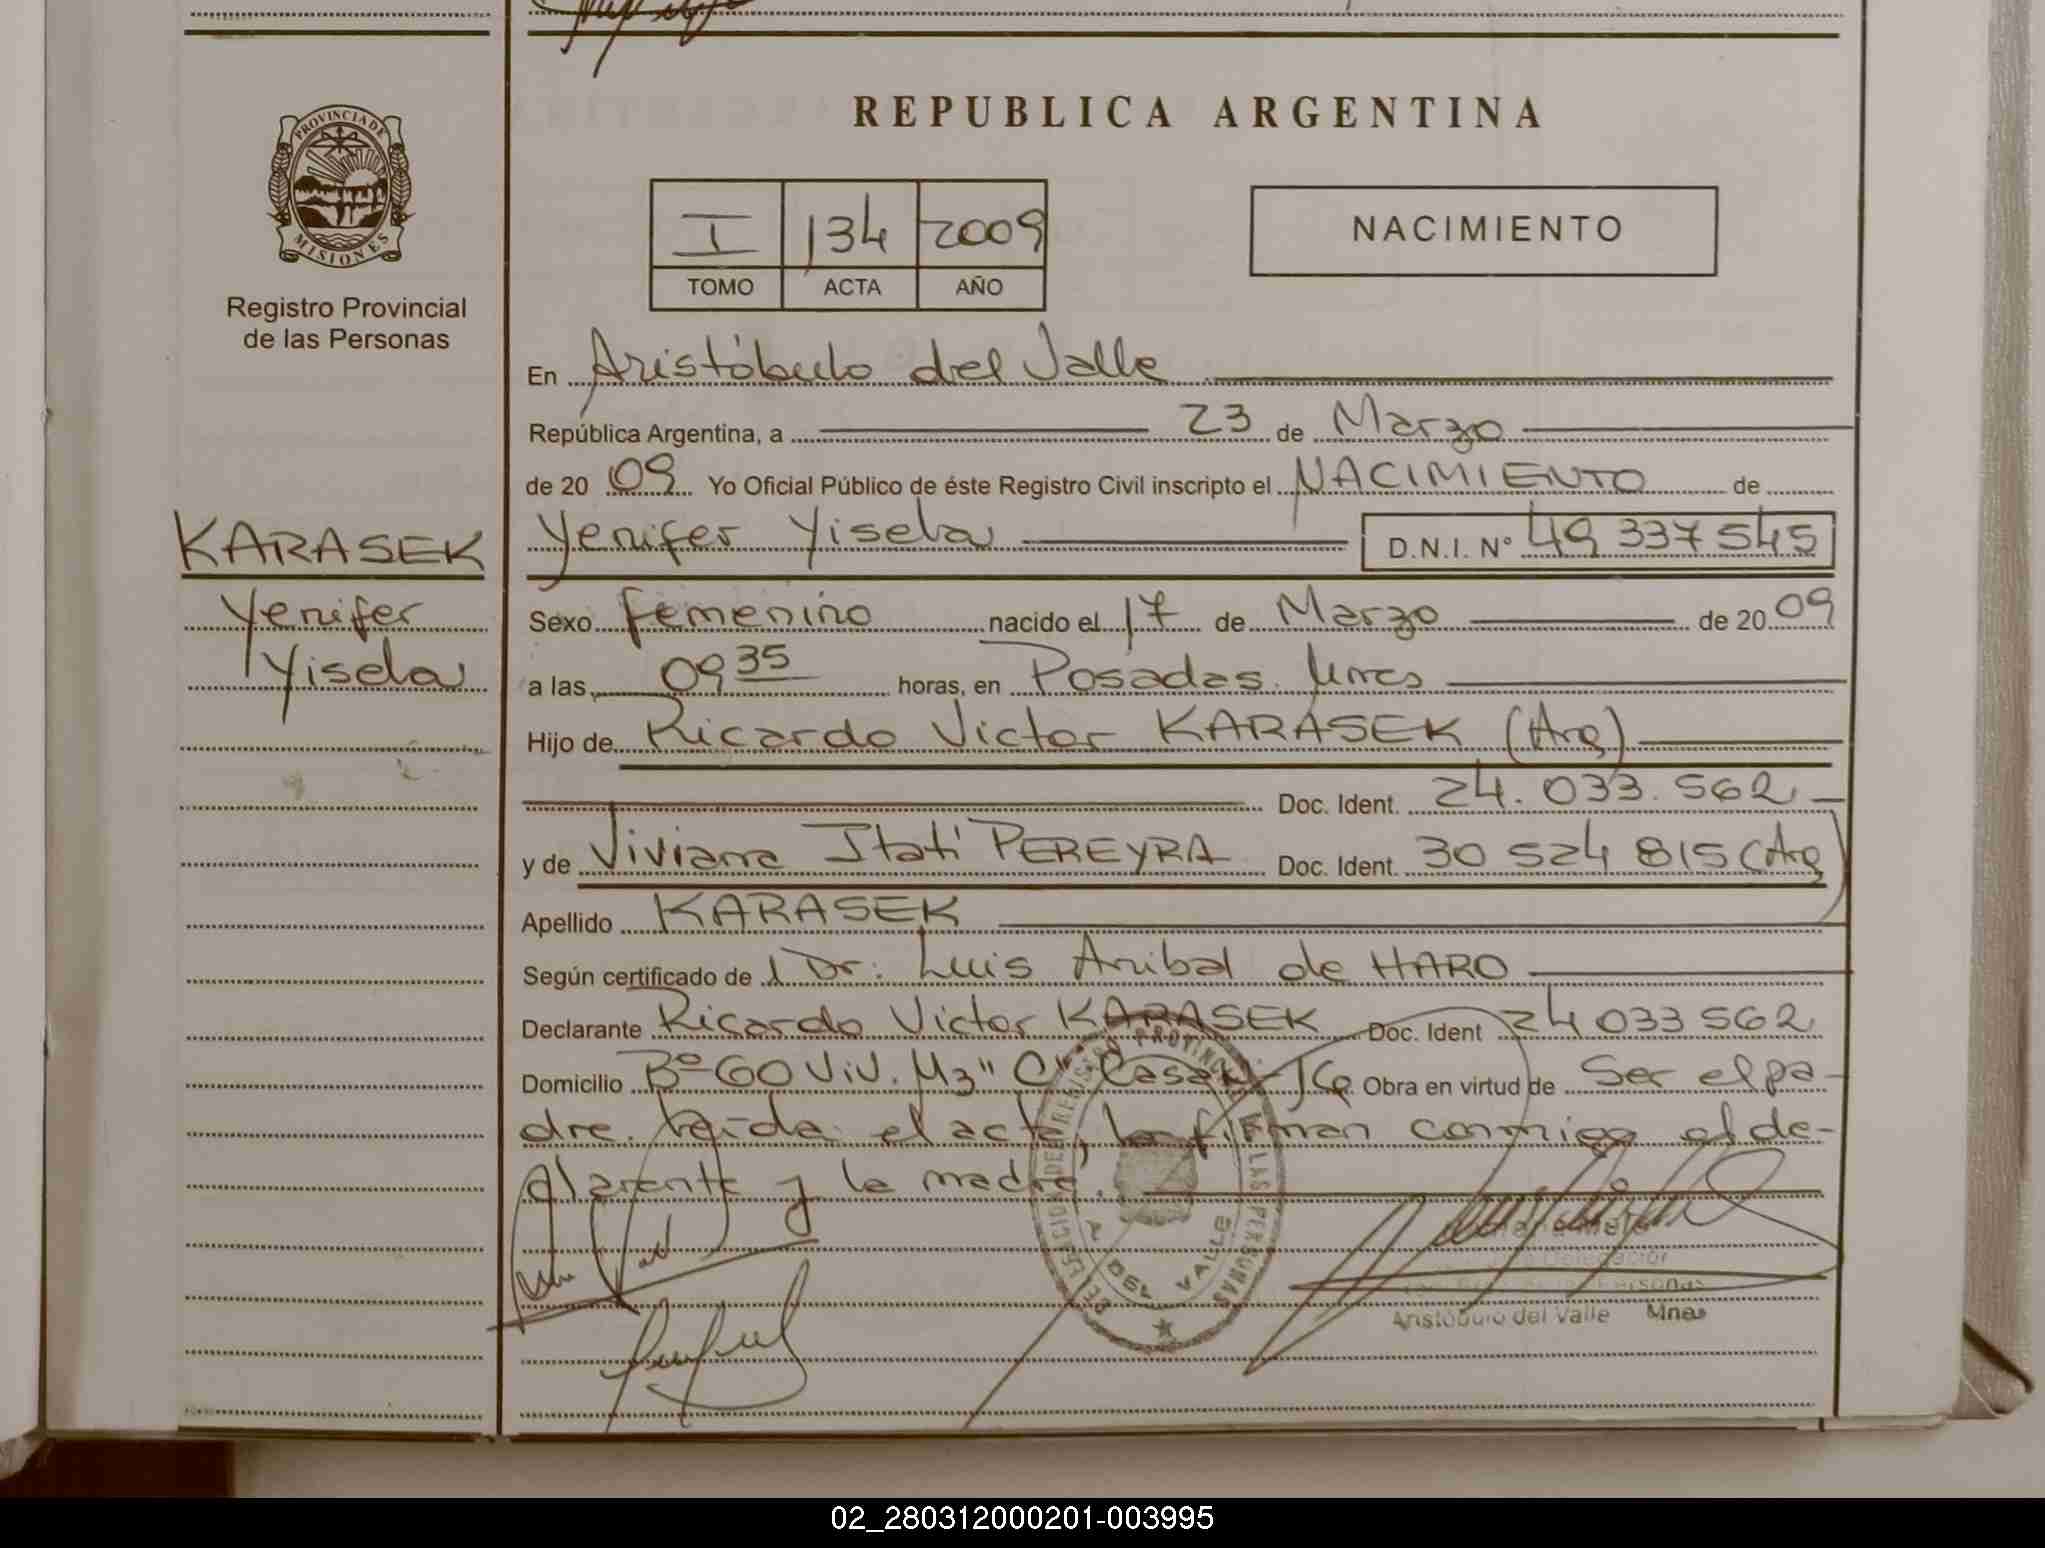 REPUBLICA ARGENTINA
PROVINCIA DE
MISIONES
Registro Provincial
de las Personas
I 134 2009
TOMO ACTA AÑO
NACIMIENTO
En Aristóbulo del Valle
República Argentina, a 23 de Marzo
de 20 09 Yo Oficial Público de éste Registro Civil inscripto el NACIMIENTO de
KARASEK
Yenifer
Yisela
Yenifer Yisela D.N.I. N° 49 337 545
Sexo femenino nacido el 17 de Marzo de 20 09
a las 09 35 horas, en Posadas. Mnes
Hijo de Ricardo Victor KARASEK (Arg)
Doc. Ident. 24.033.562
y de Viviana Itatí PEREYRA Doc. Ident. 30 524 815 (Arg)
Apellido KARASEK
Según certificado de l Dr: Luis Anibal de HARO
Declarante Ricardo Victor KARASEK Doc. Ident 24 033 562
Domicilio Bº 60 Viv. Mz "C" Casa Obra en virtud de Ser el pa-
dre. Leída el acta, la firman conmigo el de-
clarante y la madre.
A DEL VALLE
Delegación
Personas
Aristóbulo del Valle Mnes
02_280312000201-003995